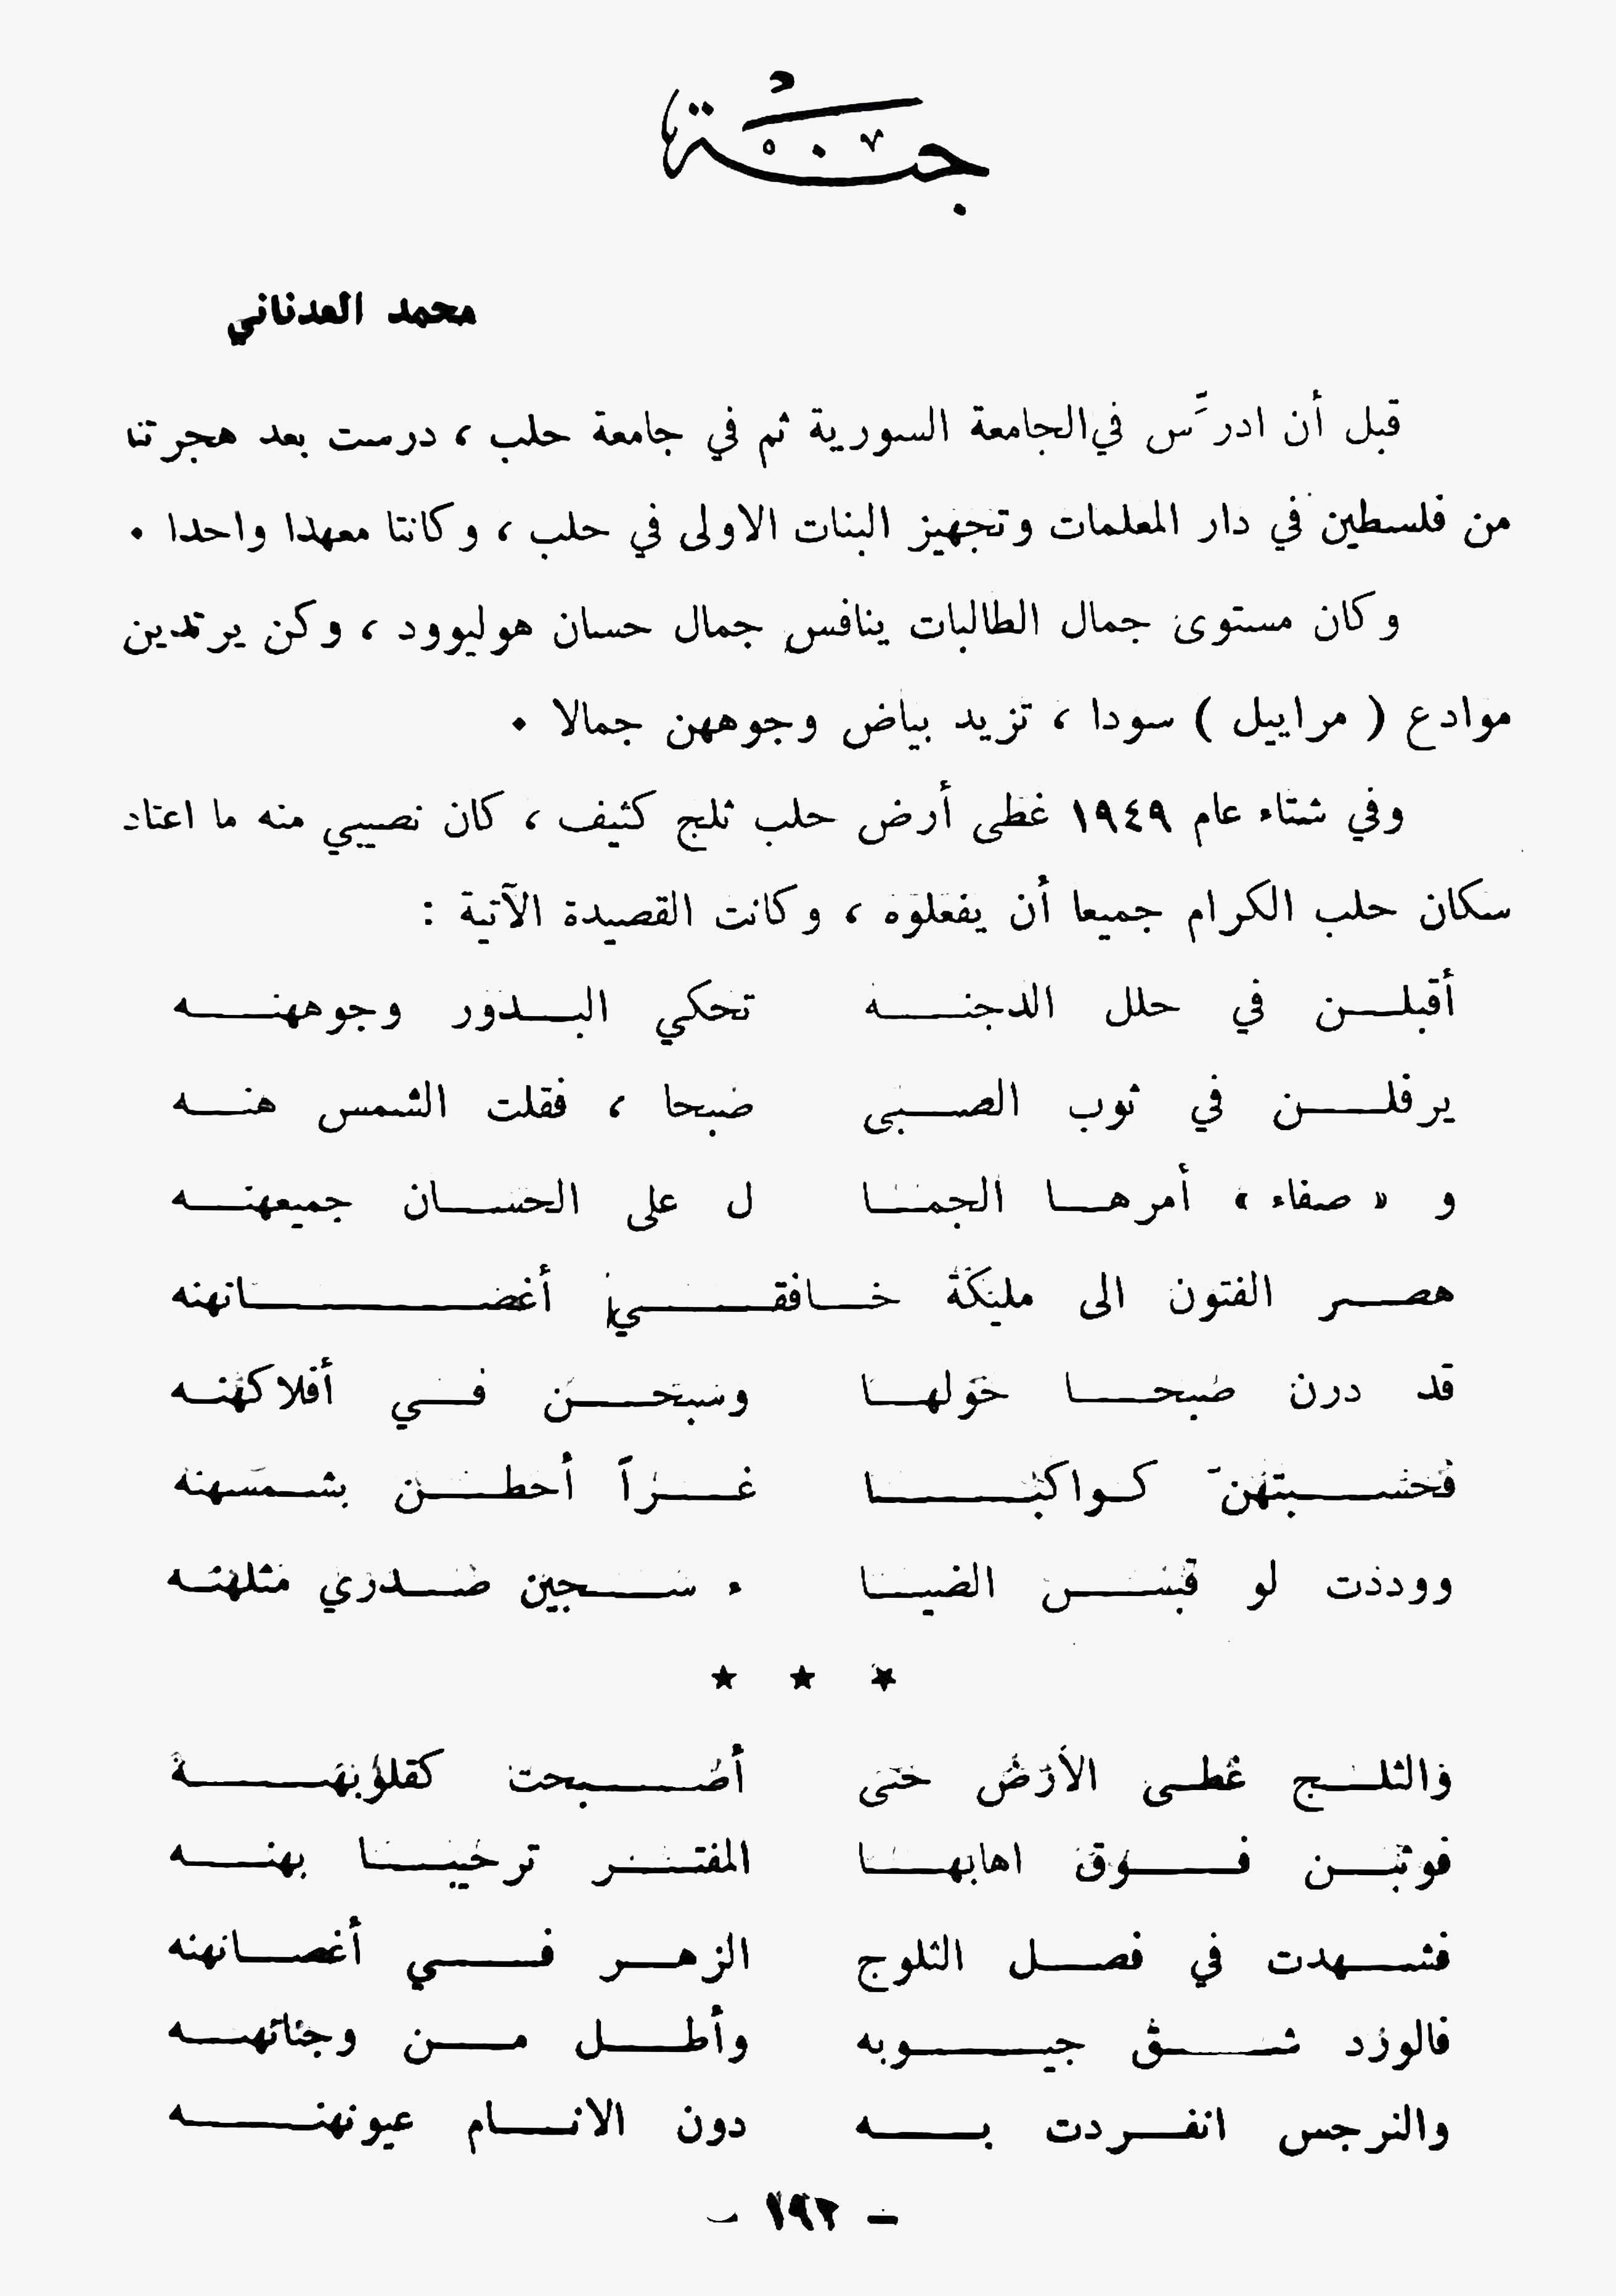 جنة
محمد العدناني
قبل أن ادرّس في الجامعة السورية ثم في جامعة حلب ، درست بعد هجرتنا
من فلسطين في دار المعلمات وتجهيز البنات الاولى في حلب ، وكانتا معهدا واحدا .
وكان مستوى جمال الطالبات ينافس جمال حسان هوليوود ، وكن يرتدين
موادع ( مراييل ) سودا ، تزيد بياض وجوههن جمالا .
وفي شتاء عام ١٩٤٩ غطى أرض حلب ثلج كثيف ، كان نصيبي منه ما اعتاد
سكان حلب الكرام جميعا أن يفعلوه ، وكانت القصيدة الآتية :
أقبلن في حلل الدجنه تحكي البدور وجوههنه
يرفلن في ثوب الصبى صبحا ، فقلت الشمس هنه
و « صفاء » أمرها الجما ل على الحسان جميعهنه
هصر الفتون الى مليكة خافقي أغصانهنه
قد درن صبحا حولها وسبحن في أفلاكهنه
فحسبتهنّ كواكبا غراً أحطن بشمسهنه
ووددت لو قبس الضيا ء سجين صدري مثلهنه
★ ★ ★
والثلج غطى الأرض حتى أصبحت كقلوبهنه
فوثبن فوق اهابها المفتر ترحيبا بهنه
فشهدت في فصل الثلوج الزهر في أغصانهنه
فالورد شق جيوبه وأطل من وجناتهنه
والنرجس انفردت به دون الانام عيونهنه
- ١٩٢ -